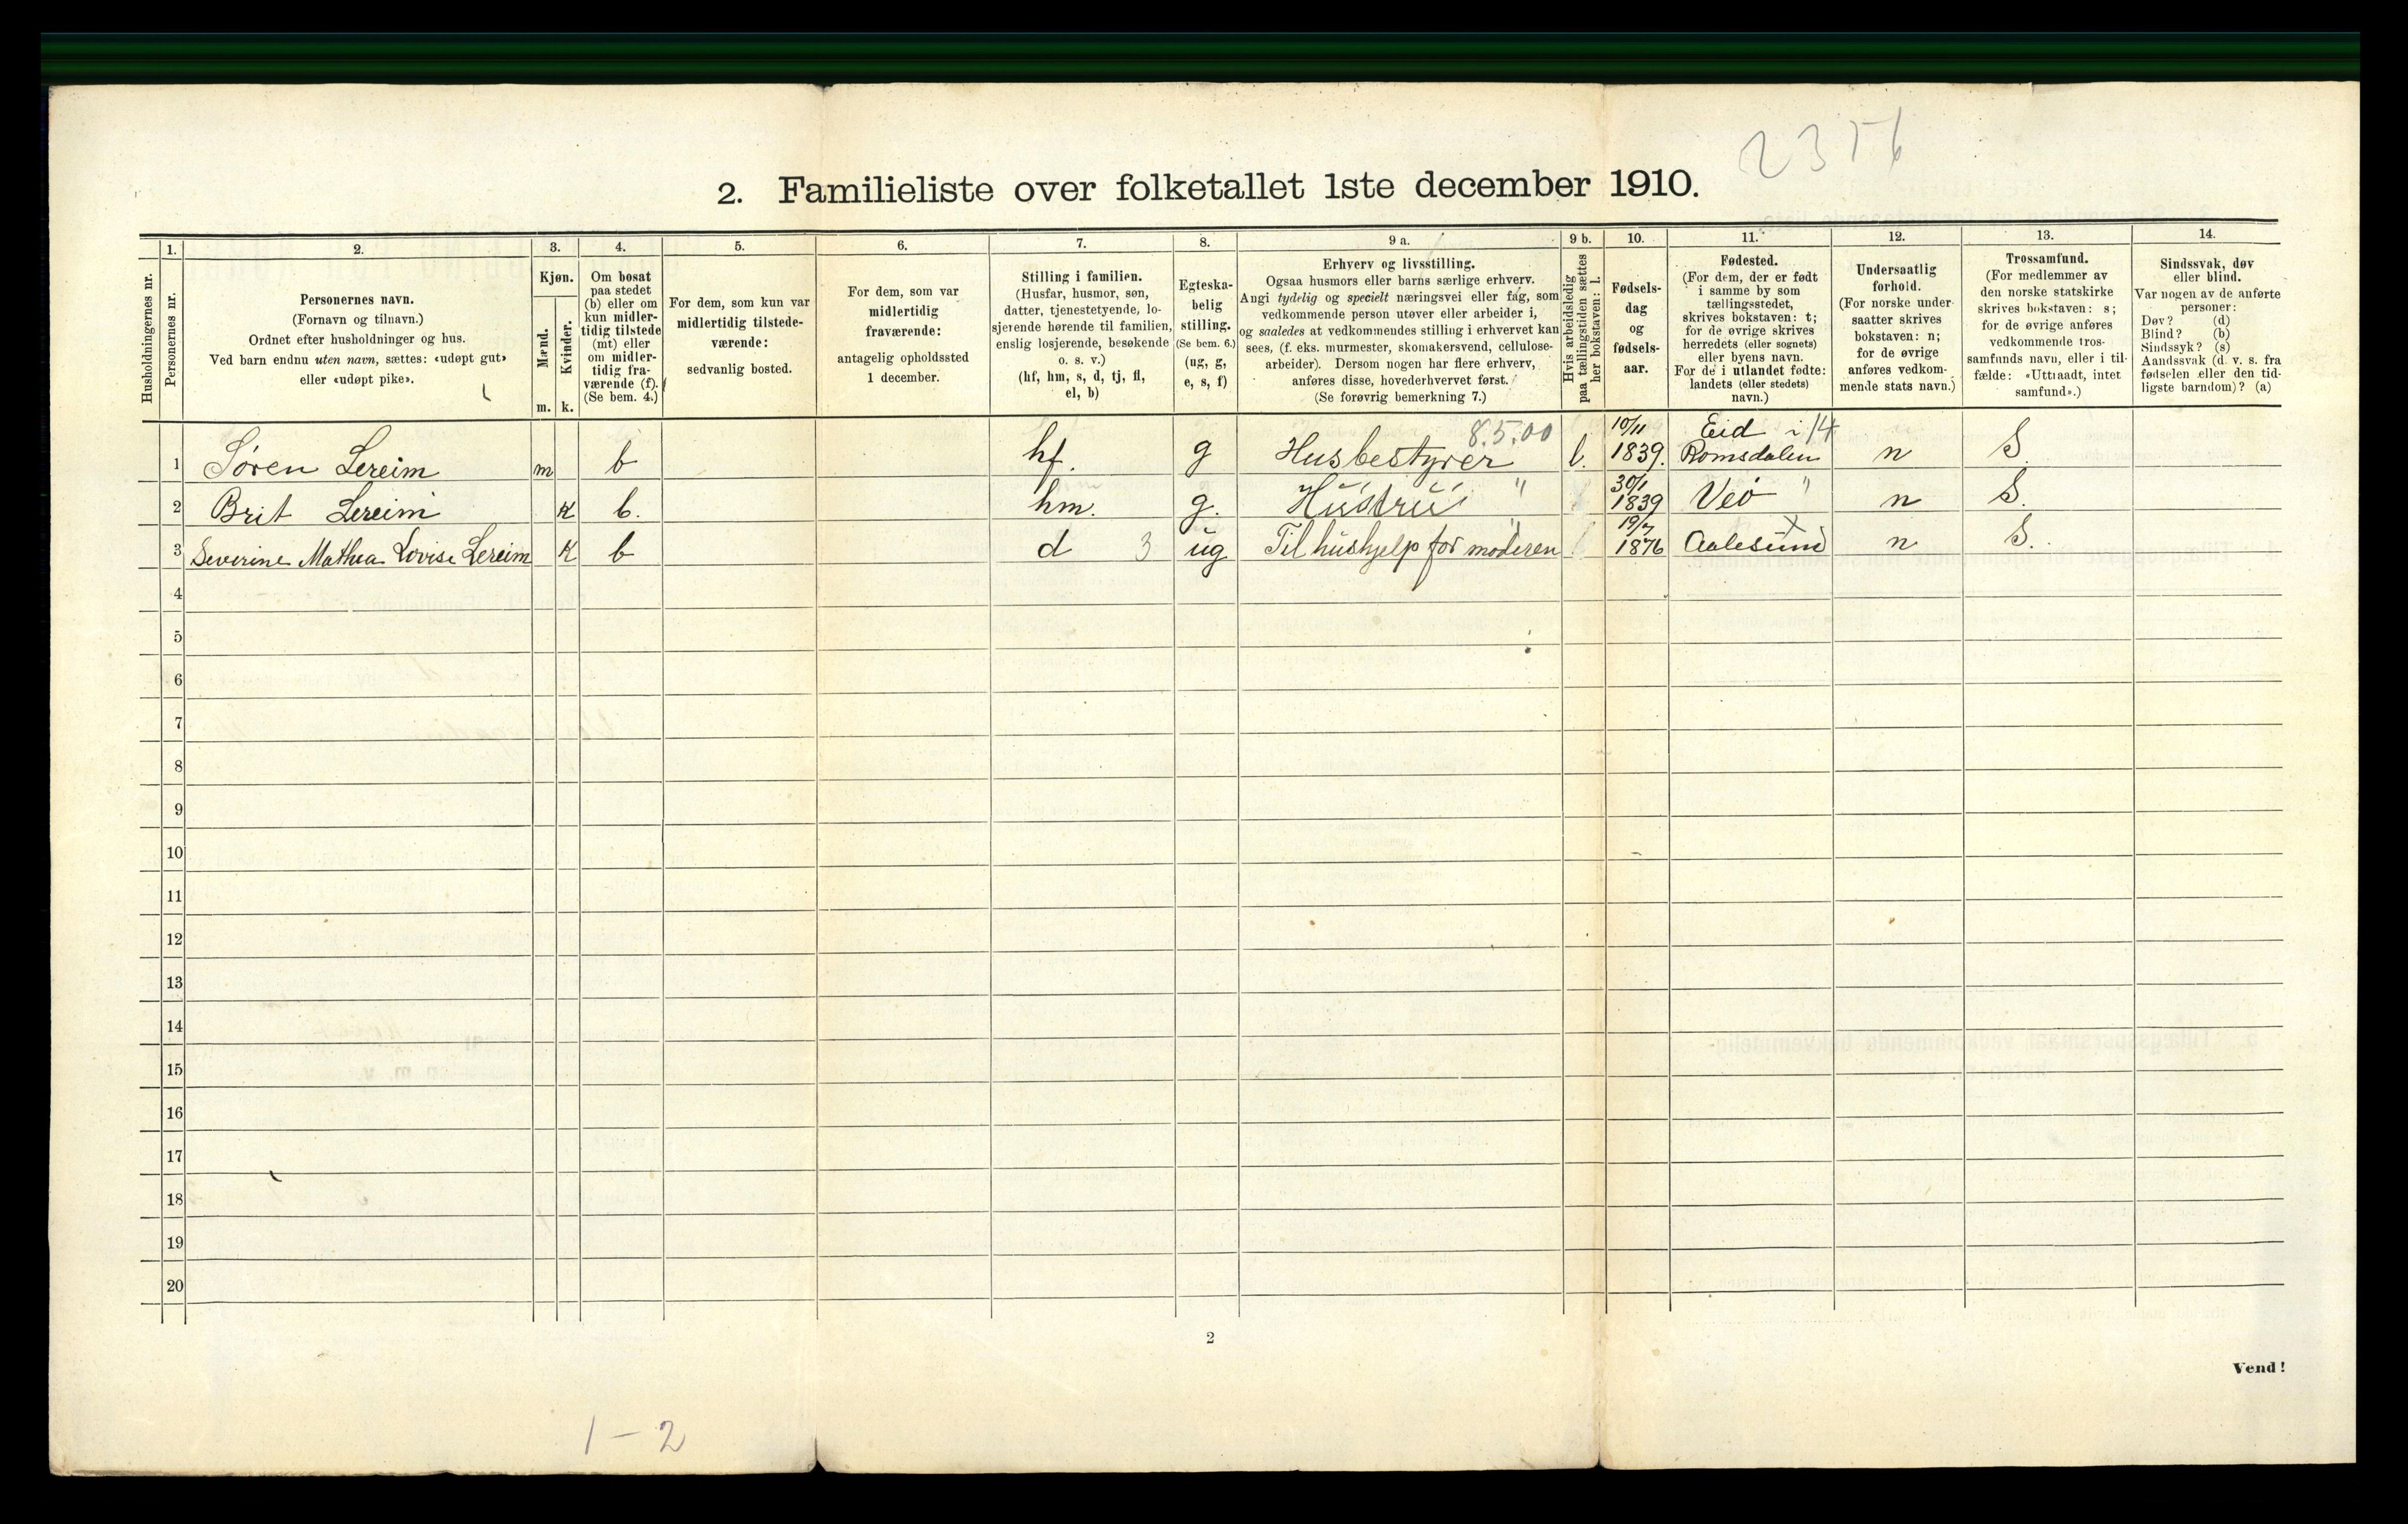 2356
2. Familieliste over folketallet 1ste december 1910.
Husholdningernes nr.
1.
Personernes nr.
2.
Personernes navn.
(Fornavn og tilnavn.)
Ordnet efter husholdninger og hus.
Ved barn endnu uten navn, sættes: «udøpt gut»
eller «udøpt pike».
3.
Kjøn.
Mænd.
Kvinder.
m. k.
4.
Om bosat
paa stedet
(b) eller om
kun midler-
tidig tilstede
(mt) eller
om midler-
tidig fra-
værende (f).
(Se bem. 4.)
5.
For dem, som kun var
midlertidig tilstede-
værende:
sedvanlig bosted.
6.
For dem, som var
midlertidig
fraværende:
antagelig opholdssted
1 december.
7.
Stilling i familien.
(Husfar, husmor, søn,
datter, tjenestetyende, lo-
sjerende hørende til familien,
enslig losjerende, besøkende
o. s. v.)
(hf, hm, s, d, tj, fl,
el, b)
8.
Egteska-
belig
stilling.
(Se bem. 6.)
(ug, g,
e, s, f)
9 a.
Erhverv og livsstilling.
Ogsaa husmors eller barns særlige erhverv.
Angi tydelig og specielt næringsvei eller fag, som
vedkommende person utøver eller arbeider i,
og saaledes at vedkommendes stilling i erhvervet kan
sees, (f. eks. murmester, skomakersvend, cellulose-
arbeider). Dersom nogen har flere erhverv,
anføres disse, hovederhvervet først.
(Se forøvrig bemerkning 7.)
9 b.
Hvis arbeidsledig
paa tællingstiden sættes
her bokstaven: l.
10.
Fødsels-
dag
og
fødsels-
aar.
11.
Fødested.
(For dem, der er født
i samme by som
tællingsstedet,
skrives bokstaven: t;
for de øvrige skrives
herredets (eller sognets)
eller byens navn.
For de i utlandet fødte:
landets (eller stedets)
navn.)
12.
Undersaatlig
forhold.
(For norske under-
saatter skrives
bokstaven: n;
for de øvrige
anføres vedkom-
mende stats navn.)
13.
Trossamfund.
(For medlemmer av
den norske statskirke
skrives bokstaven: s;
for de øvrige anføres
vedkommende tros-
samfunds navn, eller i til-
fælde: «Uttraadt, intet
samfund».)
14.
Sindssvak, døv
eller blind.
Var nogen av de anførte
personer:
Døv? (d)
Blind? (b)
Sindssyk? (s)
Aandssvak (d. v. s. fra
fødselen eller den tid-
ligste barndom)? (a)
8.5.00 10/11 Eid i 14
1 Søren Lereim m b hf. g Husbestyrer l. 1839. Romsdalen n S.
30/1
2 Brit Lereim K b. hm. g. Hustru " 1839 Veö " n S.
19/7 X
3 Severine Mathea Lovise Lereim K b d 3 ug Til hushjelp for moderen 1876 Aalesund n S.
4
5
6
7
8
9
10
11
12
13
14
15
16
17
18
19
20
2
Vend!
1-2